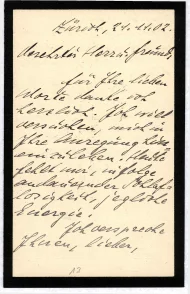 Zürich, 21.11.02.
Verehrter Herr und Freund,
für Ihre lieben
Worte danke ich
herzlich. Ich will
versuchen, mich in
Ihre Anregung
einzuleben. Heute
fehlt mir, infolge
andauernder Schlaf-
losigkeit, jegliche
Energie.
Ich verspreche
Ihnen, lieber,